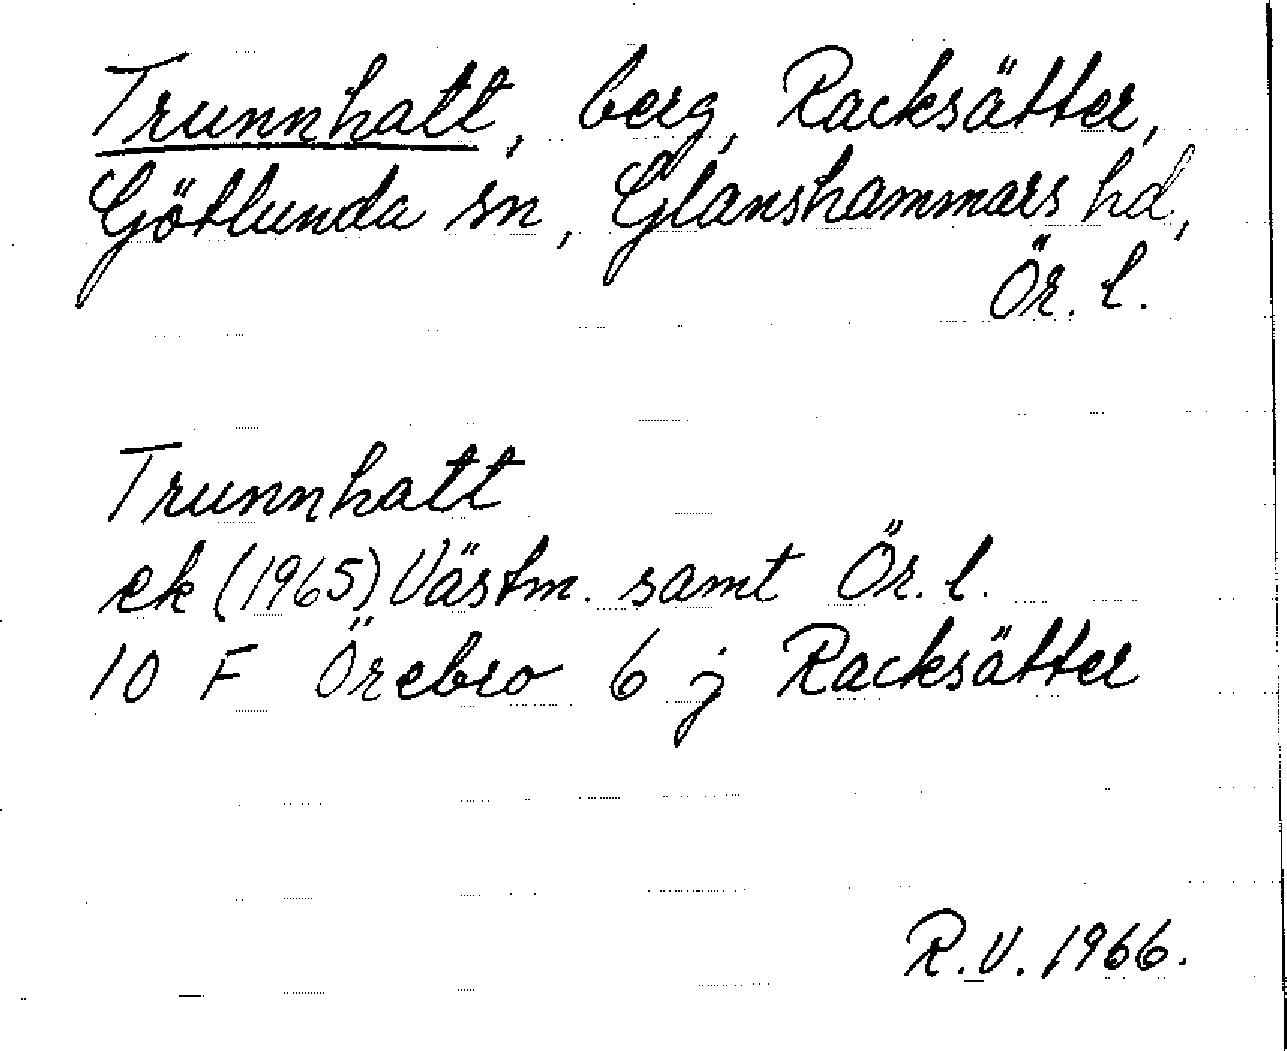 Trunnhatt, berg, Racksätter,
Götlunda sn, Glanshammars hd,
Ör. l.
Trunnhatt
ek (1965) Västm. samt Ör. l.
10 F Örebro 6 j Racksätter
R.V. 1966.